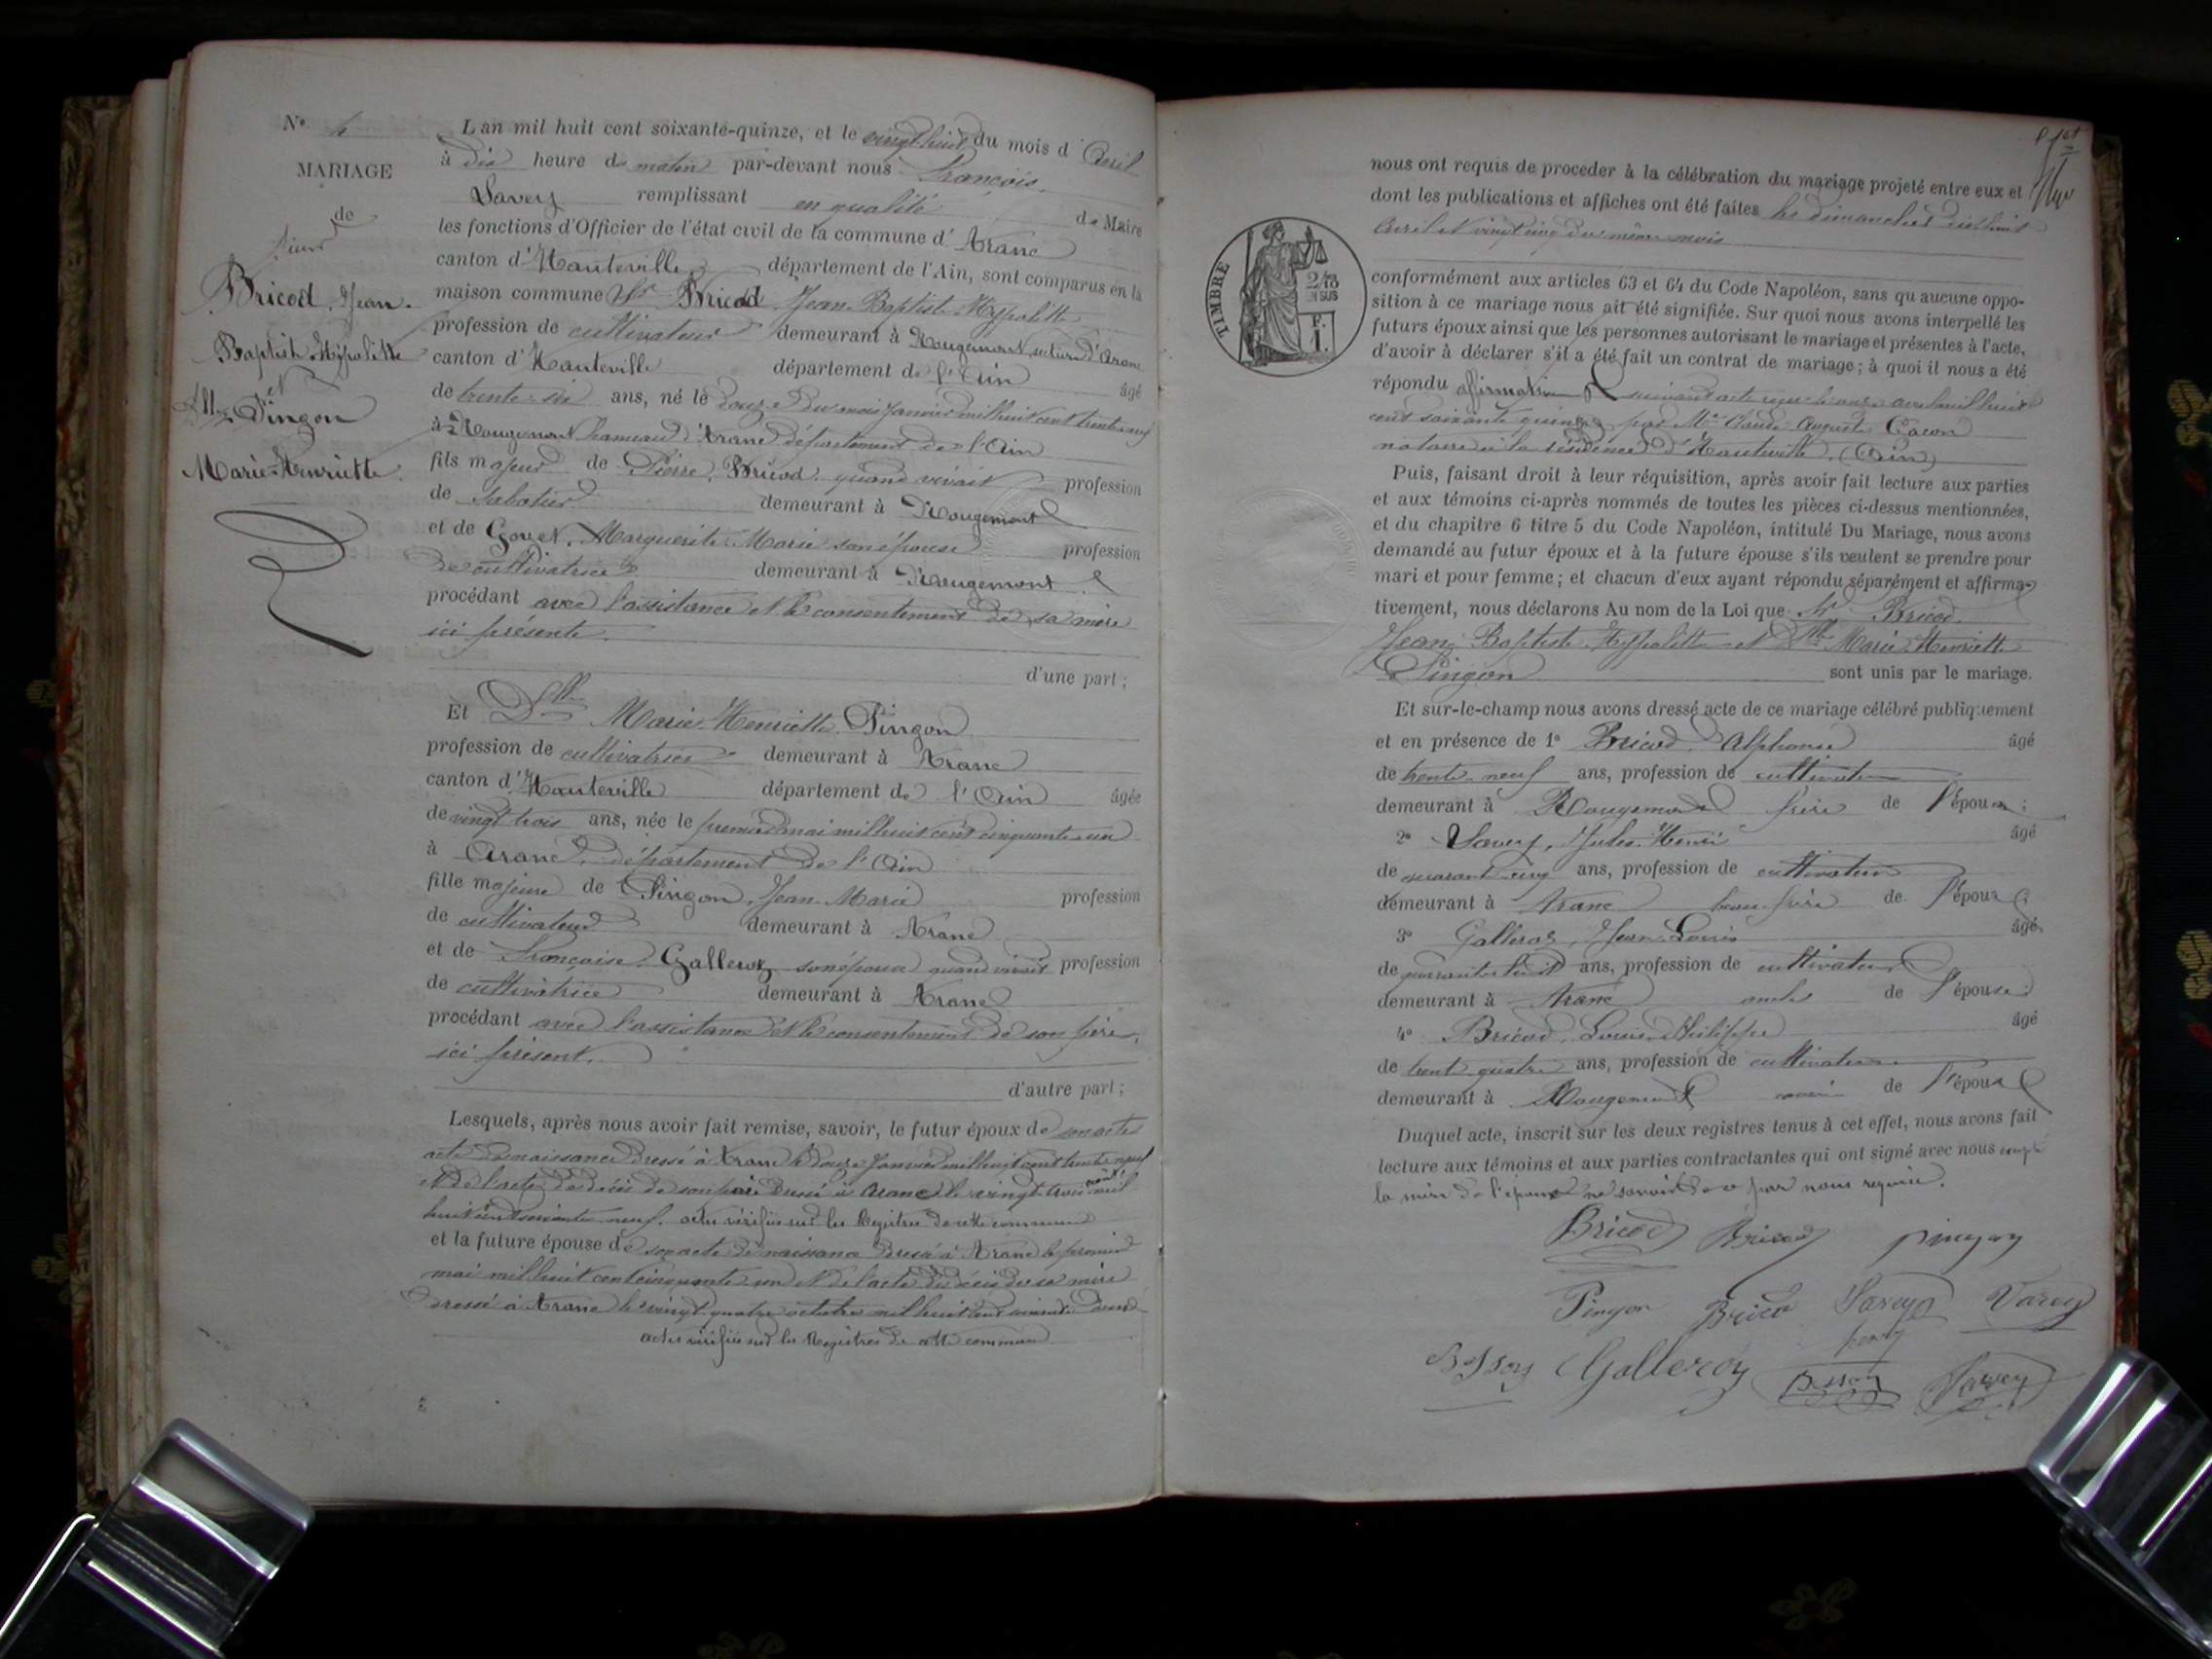 N° 4
MARIAGE
de
Sieur
Bricod, Jean-
Baptiste-Hypolitte
et
Dlle Pingon
Marie-Henriette.
L'an mil huit cent soixante-quinze, et le vingt huit du mois d'Avril
à dix heure du matin par-devant nous François
Savey remplissant en qualité de Maire
les fonctions d'Officier de l'état civil de la commune d'Aranc
canton d'Hauteville département de l'Ain, sont comparus en la
maison commune Sr Bricod Jean-Baptiste Hypolitte
profession de cultivateur demeurant à Rougemont, section d'Aranc
canton d'Hauteville département de l'Ain âgé
de trente-six ans, né le douze du mois janvier mil huit cent trente neuf
à Rougemont hameau d'Aranc département de l'Ain
fils majeur de Pierre, Bricod, quand vivait profession
de sabotier demeurant à Rougemont
et de Goyet, Marguerite-Marie son épouse profession
de cultivatrice demeurant à Rougemont
procédant avec l'assistance et le consentement de sa mère
ici présente.
d'une part;
Et Dlle Marie-Henriette Pingon
profession de cultivatrice demeurant à Aranc
canton d'Hauteville département de l'Ain âgée
de vingt trois ans, née le premier mai mil huit cent cinquante-un
à Aranc, département de l'Ain
fille majeure de Pingon, Jean-Marie profession
de cultivateur demeurant à Aranc
et de Françoise Galleroz son épouse quand vivait profession
de cultivatrice demeurant à Aranc
procédant avec l'assistance et le consentement de son père,
ici présent.
d'autre part;
Lesquels, après nous avoir fait remise, savoir, le futur époux de son acte
acte de naissance dressé à Aranc le douze janvier mil huit cent trente neuf
et de l'acte de décès de son père dressé à Aranc le vingt trois mil
huit cent soixante neuf. actes vérifiés sur les Registres de cette commune
et la future épouse de son acte de naissance dressé à Aranc le premier
mai mil huit cent cinquante un et de l'acte de décès de sa mère
dressé à Aranc le vingt quatre octobre mil huit cent soixante
actes vérifiés sur les Registres de cette commune
nous ont requis de proceder à la célébration du mariage projeté entre eux et
dont les publications et affiches ont été faites les dimanches dix huit
avril et vingt cinq du même mois
TIMBRE
2/10
EN SUS
F.
1.
conformément aux articles 63 et 64 du Code Napoléon, sans qu'aucune oppo-
sition à ce mariage nous ait été signifiée. Sur quoi nous avons interpellé les
futurs époux ainsi que les personnes autorisant le mariage et présentes à l'acte,
d'avoir à déclarer s'il a été fait un contrat de mariage; à quoi il nous a été
répondu suivant acte reçu le onze avril mil huit
cent soixante quinze, par Me Claude Auguste
notaire à la résidence d'Hauteville (Ain)
Puis, faisant droit à leur réquisition, après avoir fait lecture aux parties
et aux témoins ci-après nommés de toutes les pièces ci-dessus mentionnées,
et du chapitre 6 titre 5 du Code Napoléon, intitulé Du Mariage, nous avons
demandé au futur époux et à la future épouse s'ils veulent se prendre pour
mari et pour femme; et chacun d'eux ayant répondu séparément et affirma-
tivement, nous déclarons Au nom de la Loi que Sr Bricod
Jean-Baptiste-Hyppolitte et Dlle Marie-Henriette
Pingon sont unis par le mariage.
Et sur-le-champ nous avons dressé acte de ce mariage célébré publiquement
et en présence de 1° Bricod, Alphonse âgé
de trente-neuf ans, profession de cultivateur
demeurant à Rougemont frère de l'époux;
2° Savey, Jules-Henri âgé
de quarante cinq ans, profession de cultivateur
demeurant à Aranc beau frère de l'époux
3° Galleroz, Jean-Louis âgé
de quarante huit ans, profession de cultivateur
demeurant à Aranc oncle de l'épouse
4° Bricod, Louis-Philippe âgé
de trente quatre ans, profession de cultivateur
demeurant à Rougemont cousin de l'époux
Duquel acte, inscrit sur les deux registres tenus à cet effet, nous avons fait
lecture aux témoins et aux parties contractantes qui ont signé avec nous excepté
la mère de l'époux ne savoir de ce par nous requise.
Bricod Bricod pingon
Pingon Bricod Savey Varey
henry
Galleroz Savey